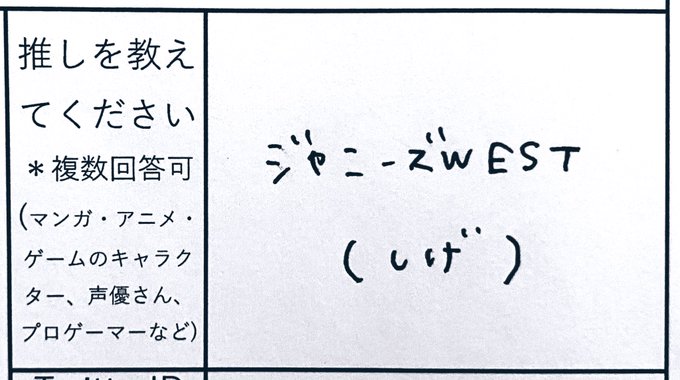 推しを教え
てください
＊複数回答可
(マンガ・アニメ・
ゲームのキャラク
ター、声優さん、
プロゲーマーなど)
ジャニーズWEST
(しげ)